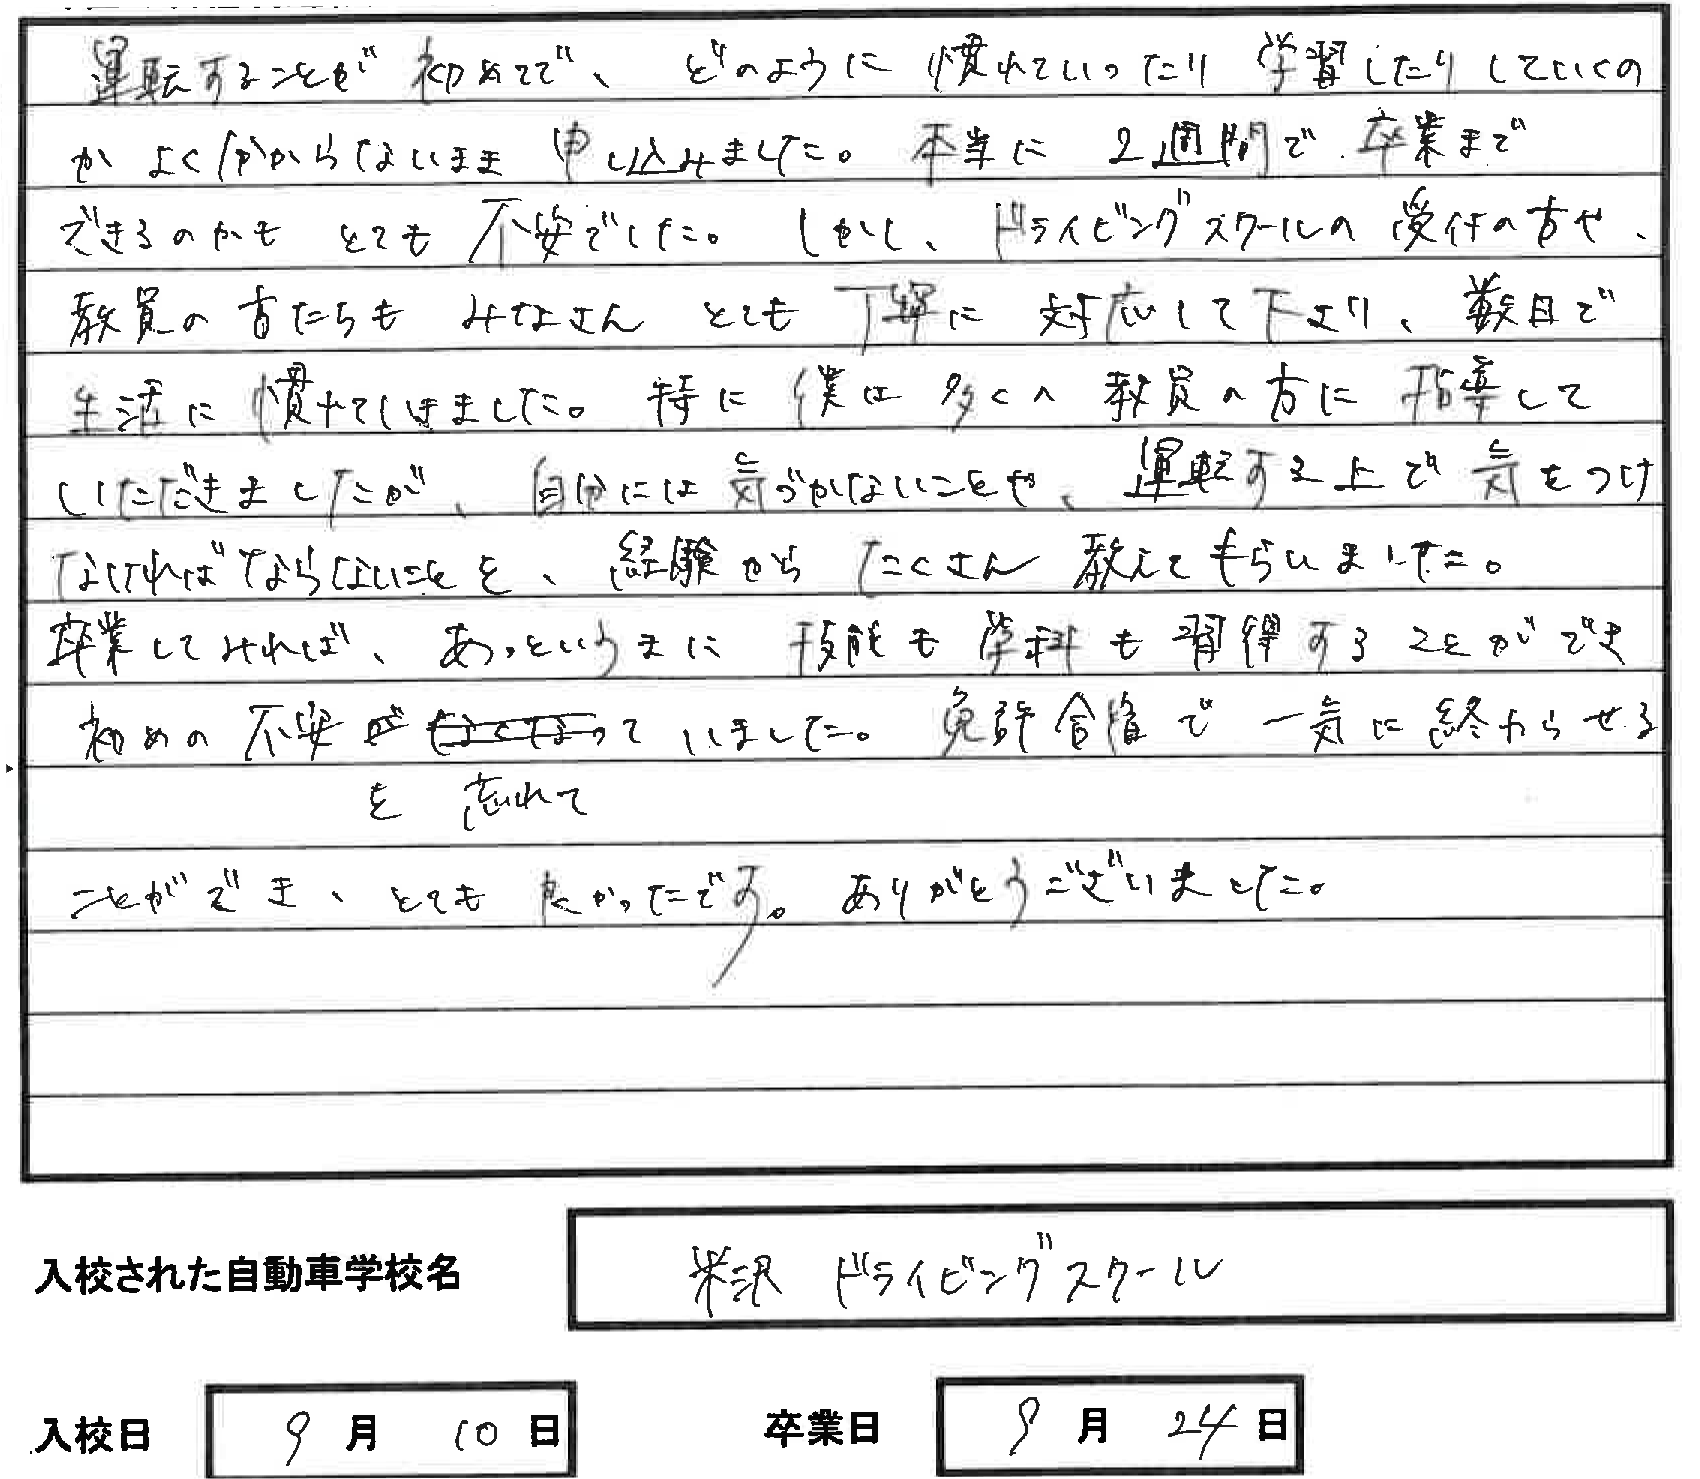 運転することが初めてで、どのように慣れていったり学習したりしていくの
かよく分からないまま申し込みました。本当に2週間で卒業まで
できるのかもとても不安でした。しかし、ドライビングスクールの受付の方や、
教員の方たちもみなさんとても丁寧に対応して下より、数日で
生活に慣れてしまいました。特に僕は多くの教員の方に指導して
いただきましたが、自分には気づかないことや、運転する上で気をつけ
なければならないことを、経験からたくさん教えてもらいました。
卒業してみれば、あっというまに技能も学科も習得することができ
初めの不安がなくなっていました。免許合宿で一気に終わらせる
を 忘れて
ことができ、とても良かったです。ありがとうございました。
入校された自動車学校名 米沢 ドライビングスクール
入校日 9月10日 卒業日 9月24日